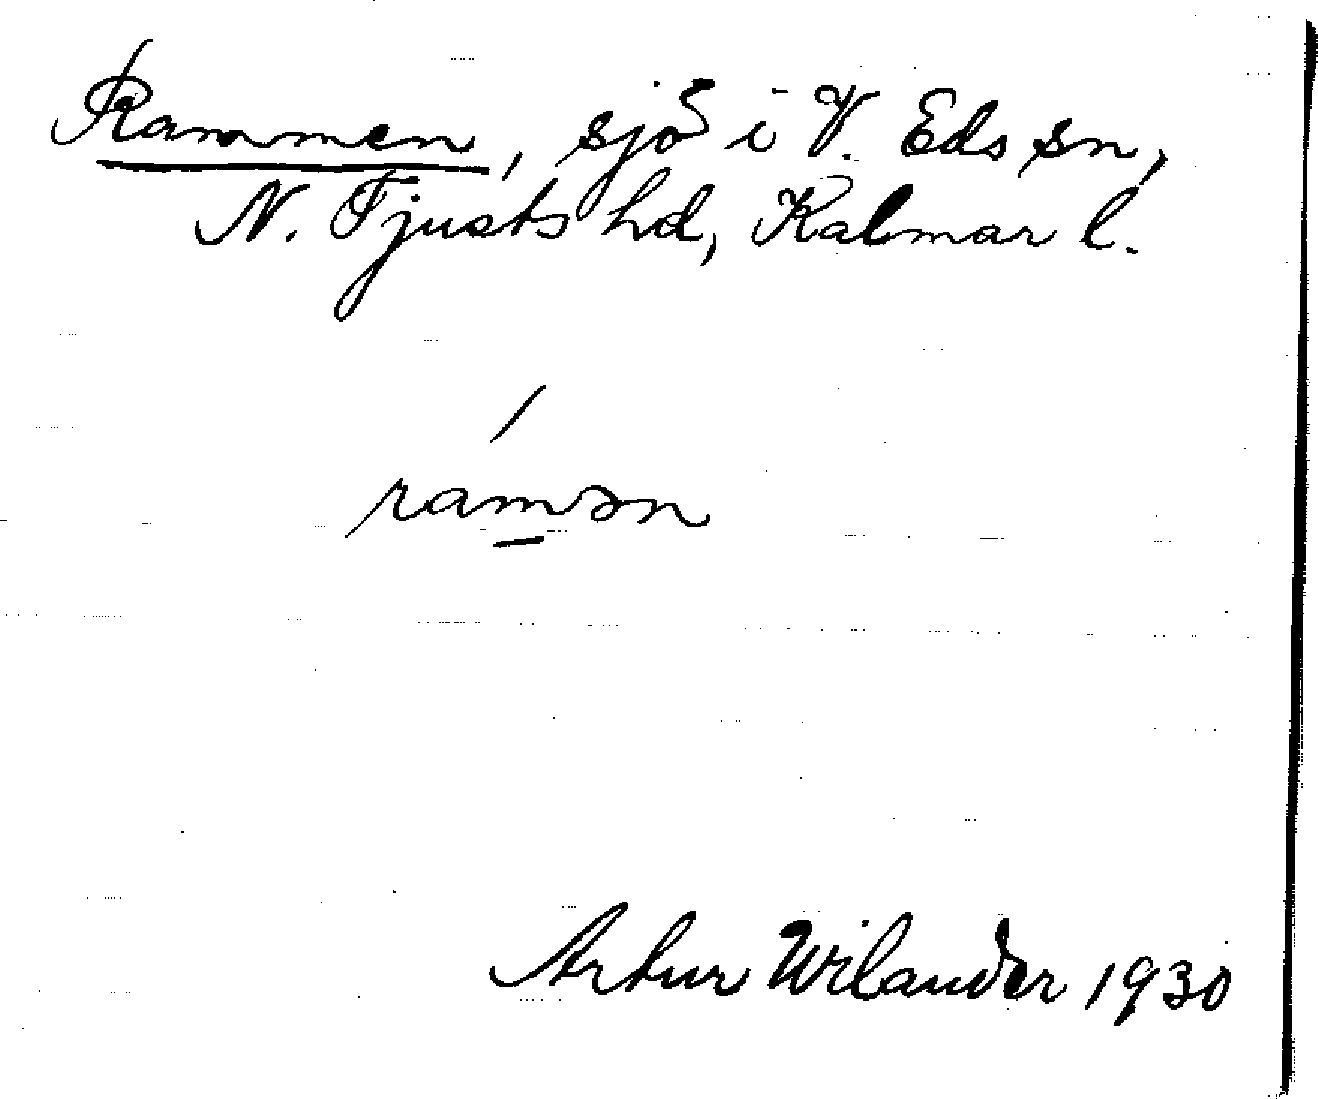 Rammen, sjö i V. Eds sn,
N. Tjusts hd, Kalmar l.
ramən
Artur Wilander 1930